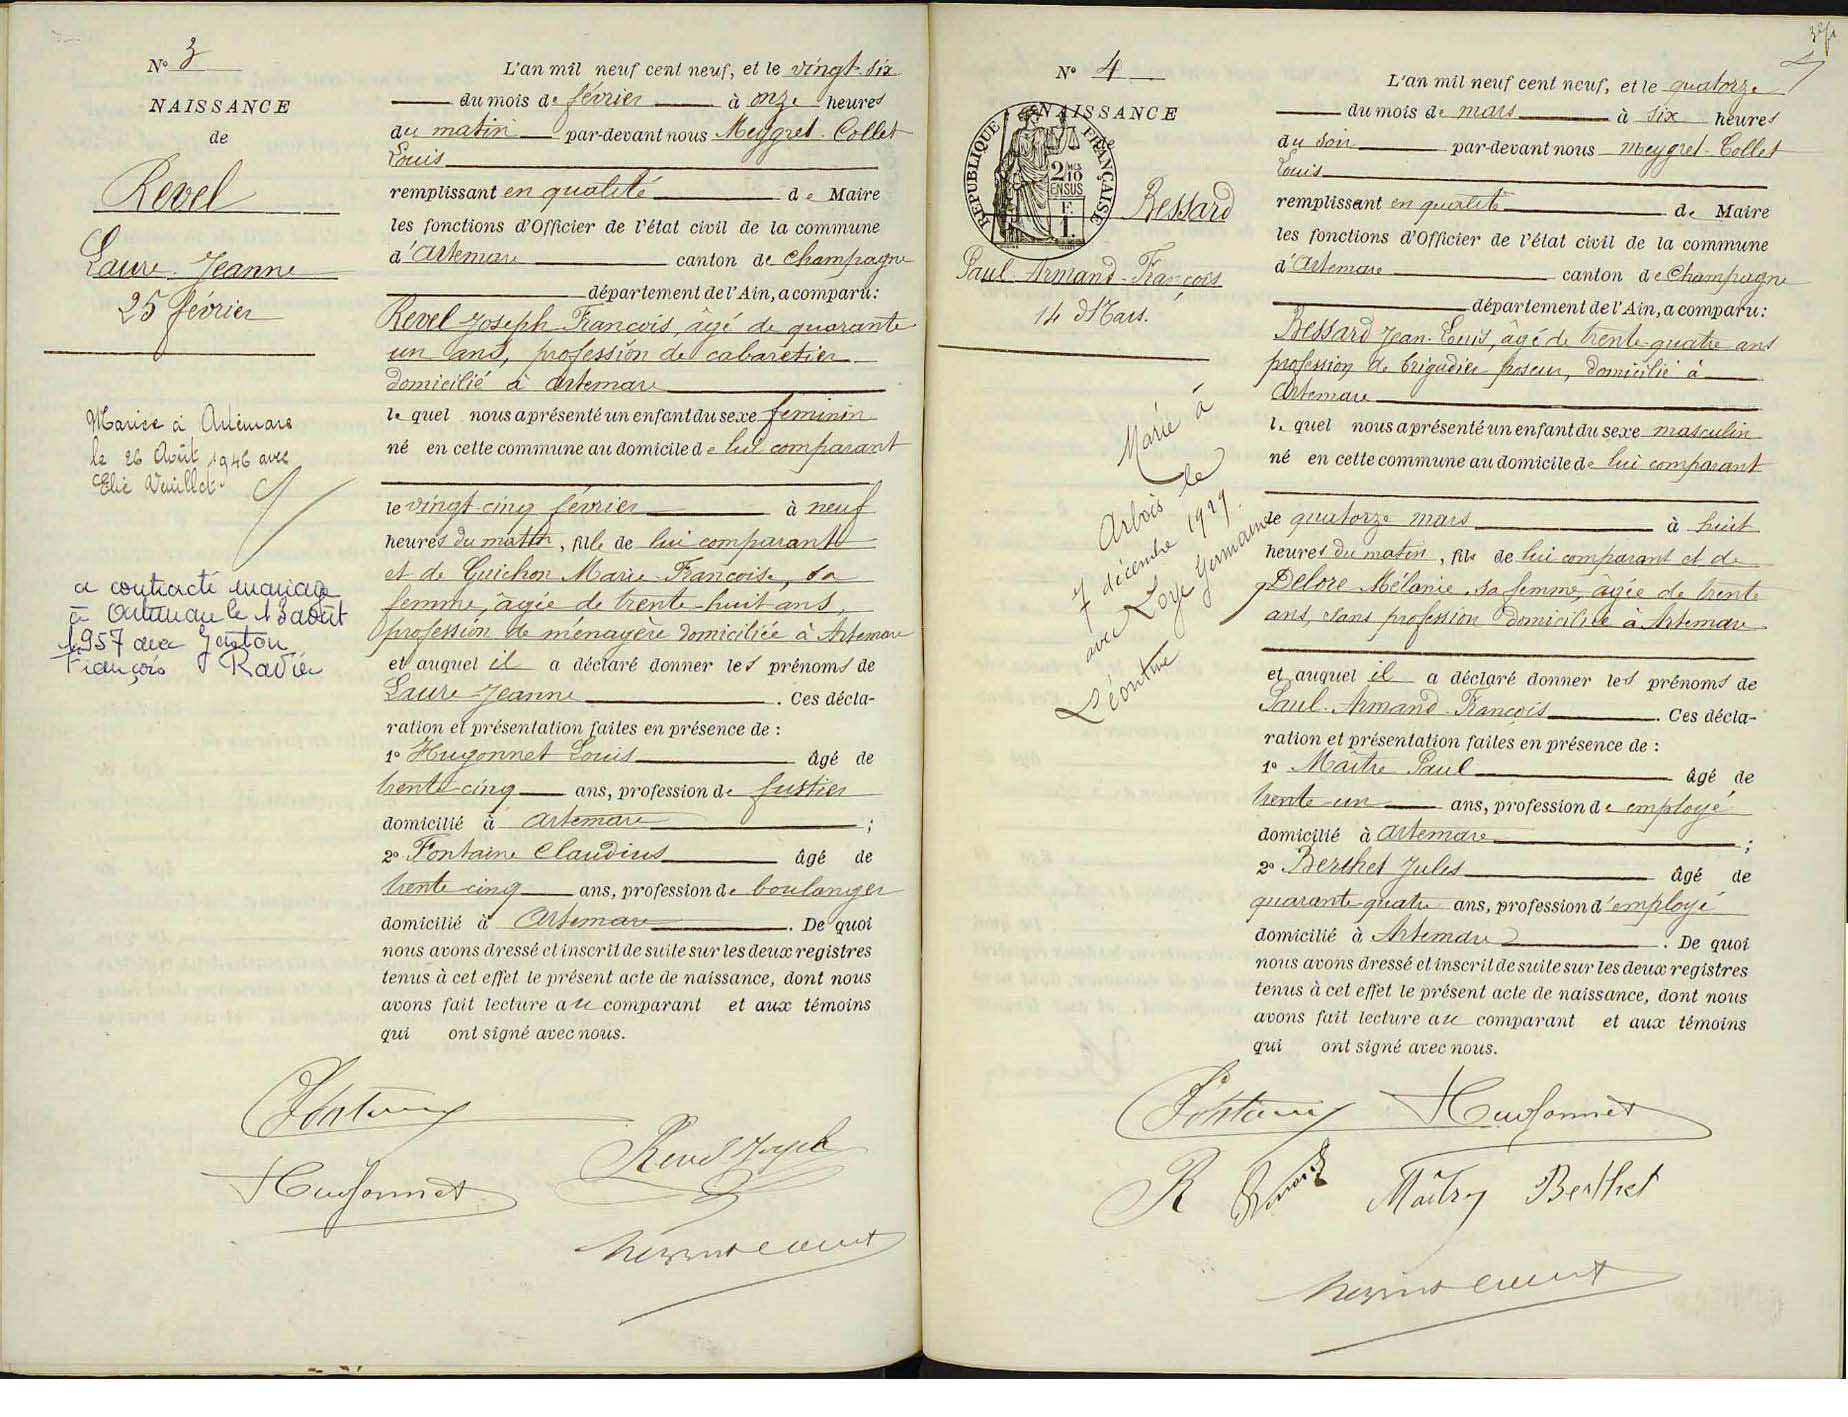 N° 3
NAISSANCE
de
Revel
Laure Jeanne
25 février
Mariée à Artemare
le 26 Août 1946 avec
Elie Vuillet
a contracté mariage
à Artemare le 13 août
1957 avec Gaston
François Ravier
L'an mil neuf cent neuf, et le vingt-six
du mois de février à onze heures
du matin par-devant nous Meygret-Collet
Louis
remplissant en qualité de Maire
les fonctions d'Officier de l'état civil de la commune
d'Artemare canton de Champagne
département de l'Ain, a comparu:
Revel Joseph-François, âgé de quarante
un ans, profession de cabaretier
domicilié à Artemare
le quel nous a présenté un enfant du sexe féminin
né en cette commune au domicile de lui comparant
le vingt-cinq février à neuf
heures du matin, fille de lui comparant
et de Guichon Marie-Françoise, sa
femme, âgée de trente-huit ans,
profession de ménagère domiciliée à Artemare
et auquel il a déclaré donner les prénoms de
Laure-Jeanne. Ces décla-
ration et présentation faites en présence de :
1° Hugonnet Louis âgé de
trente-cinq ans, profession de fustier
domicilié à Artemare ;
2° Fontaine Claudius âgé de
trente-cinq ans, profession de boulanger
domicilié à Artemare. De quoi
nous avons dressé et inscrit de suite sur les deux registres
tenus à cet effet le présent acte de naissance, dont nous
avons fait lecture au comparant et aux témoins
qui ont signé avec nous.
Fontaine
Revel Joseph
Hugonnet
N° 4
NAISSANCE
de
RÉPUBLIQUE FRANÇAISE
2/10
EN SUS
F.
1.
Bessard
Paul-Armand-François
14 Mars.
Marié à
Arbois le
7 décembre 1929
avec Loye Germaine
Léontine
L'an mil neuf cent neuf, et le quatorze
du mois de mars à six heures
du soir par-devant nous Meygret-Collet
Louis
remplissant en qualité de Maire
les fonctions d'Officier de l'état civil de la commune
d'Artemare canton de Champagne
département de l'Ain, a comparu:
Bessard Jean-Louis, âgé de trente-quatre ans
profession de brigadier poseur, domicilié à
Artemare
le quel nous a présenté un enfant du sexe masculin
né en cette commune au domicile de lui comparant
le quatorze mars à huit
heures du matin, fils de lui comparant et de
Delore Mélanie, sa femme, âgée de trente
ans, sans profession domiciliée à Artemare
et auquel il a déclaré donner les prénoms de
Paul-Armand-François. Ces décla-
ration et présentation faites en présence de :
1° Maître Paul âgé de
trente-un ans, profession de employé
domicilié à Artemare ;
2° Berthet Jules âgé de
quarante-quatre ans, profession d'employé
domicilié à Artemare. De quoi
nous avons dressé et inscrit de suite sur les deux registres
tenus à cet effet le présent acte de naissance, dont nous
avons fait lecture au comparant et aux témoins
qui ont signé avec nous.
Fontaine Hugonnet
Berthet